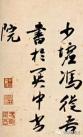 少墟馮從吾
書於関中書
院